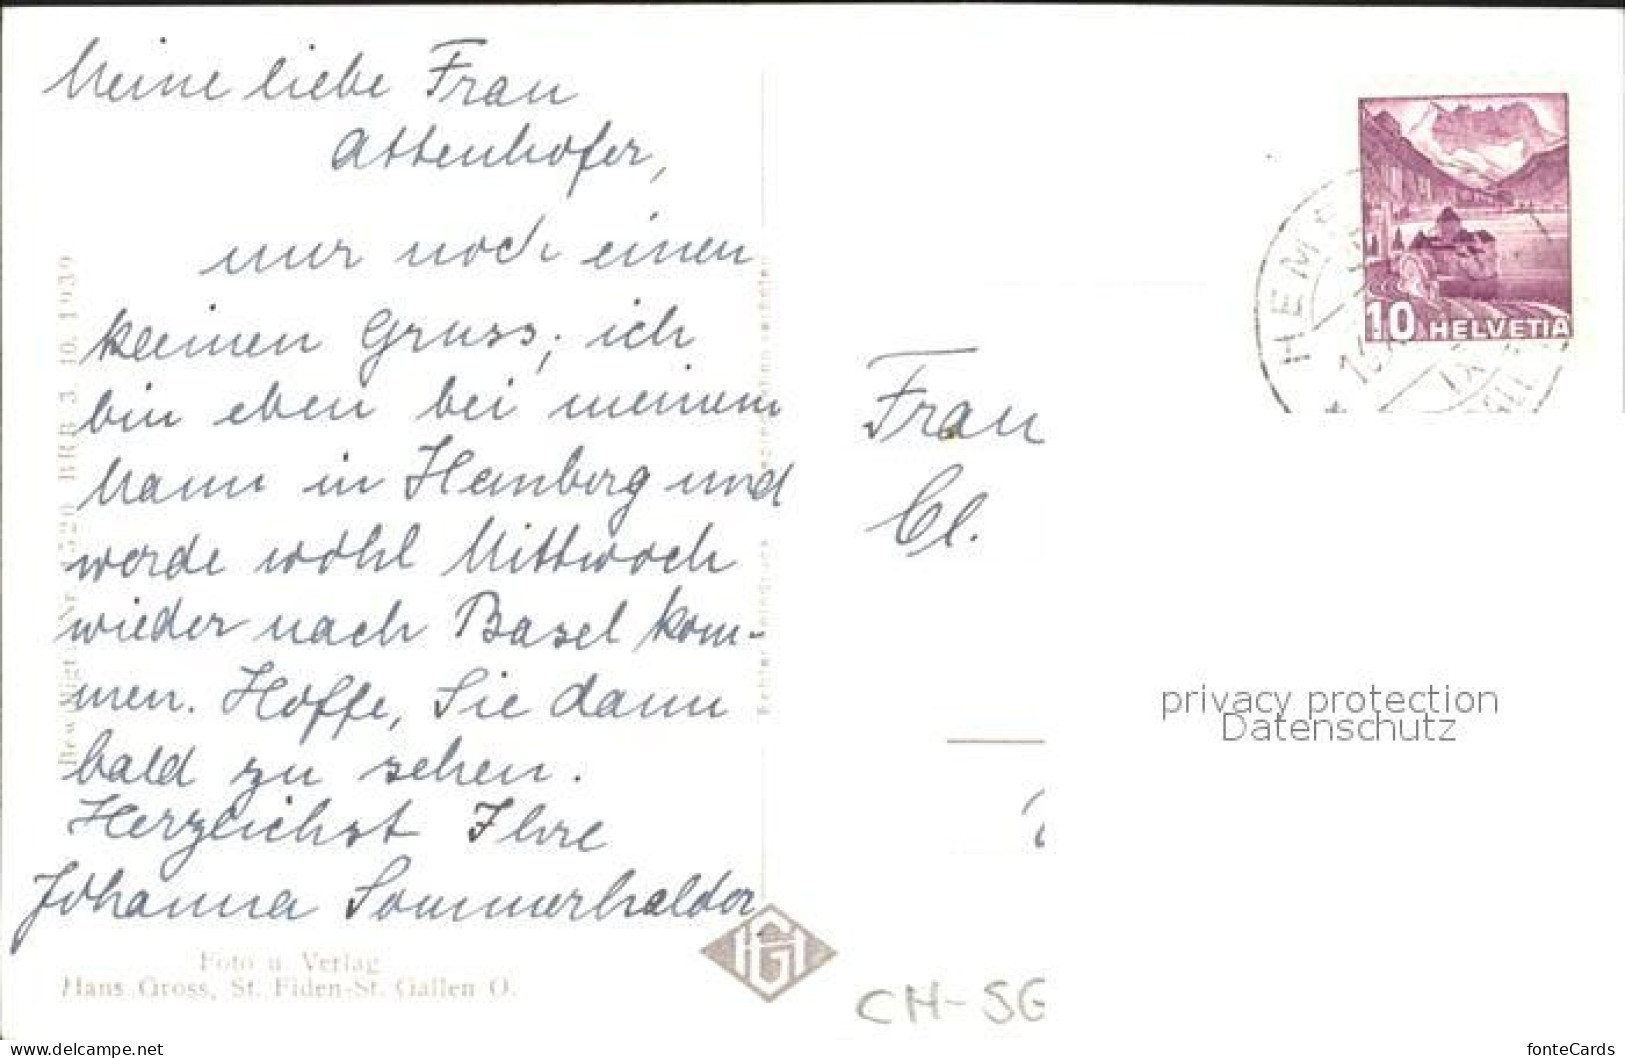 Meine liebe Frau
Attenhofer,
nur noch einen
kleinen Gruss; ich
bin eben bei meinem
Mann in Hemberg und
werde wohl Mittwoch
wieder nach Basel kom-
men. Hoffe, Sie dann
bald zu sehen.
Herzlichst Ihre
Johanna Sommerhalder
Foto u. Verlag
Hans Gross, St. Fiden-St. Gallen O.
HG
BRB 3. 10. 1939
HEMB
10 HELVETIA
Frau
Cl.
privacy protection
Datenschutz
CH-SG
delcampe.net
fonteCards